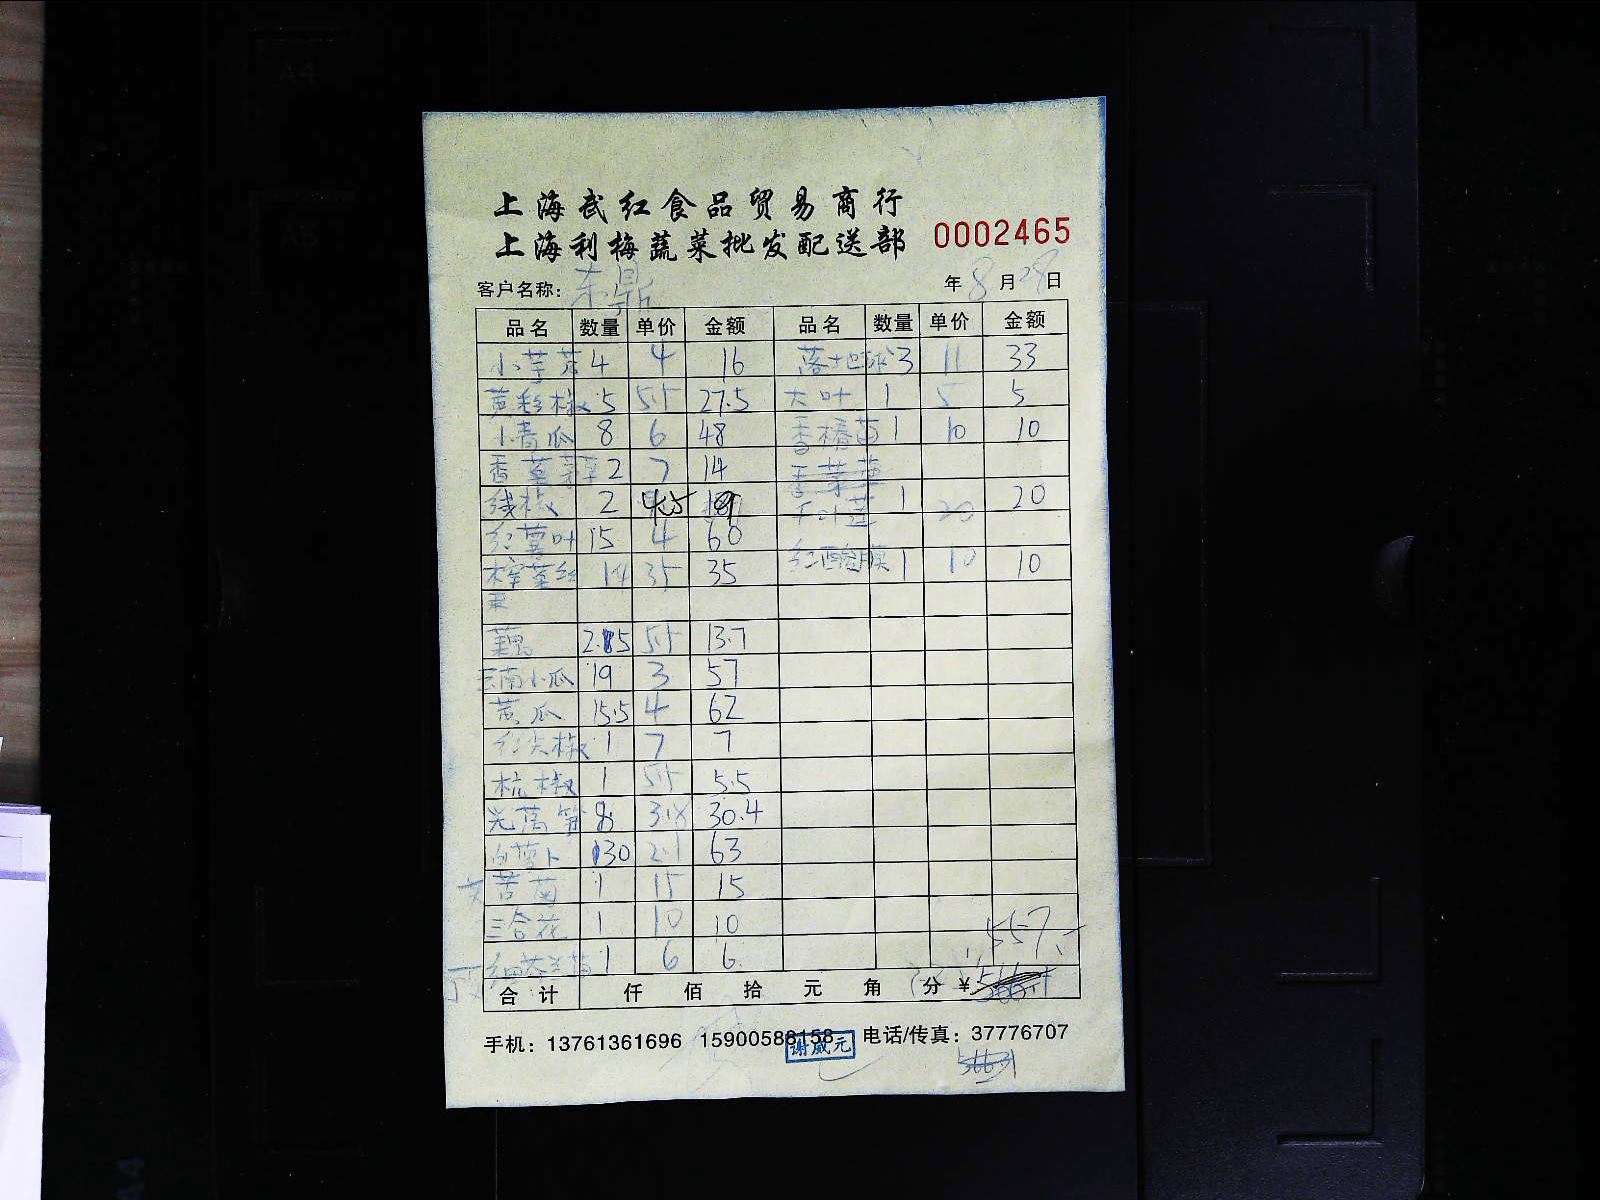 上海武红食品贸易商行
上海利梅蔬菜批发配送部 0002465
客户名称: 年 8 月 日
品名 数量 单价 金额 品名 数量 单价 金额
小芋艿 4 4 16 落地球 3 11 33
黄彩椒 5 5.5 27.5 大叶 1 5 5
小青瓜 8 6 48 香椿苗 1 10 10
香草 2 7 14
线椒 2 4.5 9 1 20 20
红薯叶 15 4 60 1 10 10
榨菜丝 14 35 35
藕 5.5 13.7
云南小瓜 19 3 57
黄瓜 15.5 4 62
红尖椒 1 7 7
杭椒 1 5.5 5.5
光莴笋 8 3.8 30.4
白萝卜 30 2.1 63
苦菊 1 15 15
三合花 1 10 10
1 6 6
557
合计 仟 佰 拾 元 角 分 ¥
手机: 13761361696 15900588158 电话/传真: 37776707
谢威元